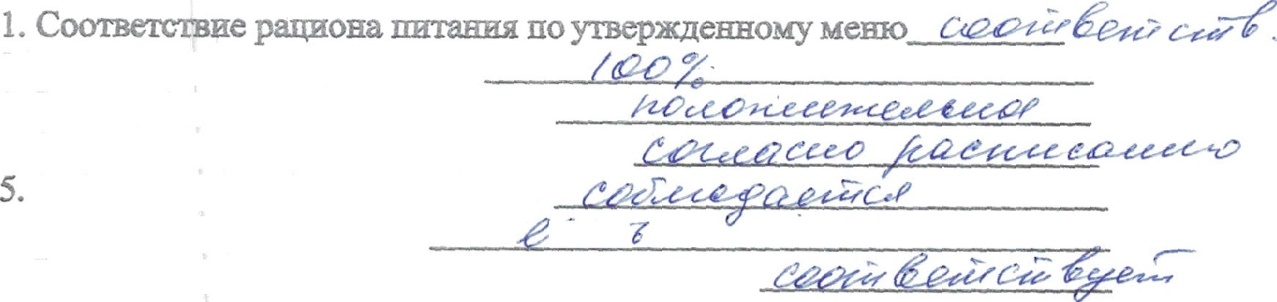 1. Соответствие рациона питания по утвержденному меню соответств.
100%
положительная
согласно расписанию
5. соблюдается
е ъ
соответствует